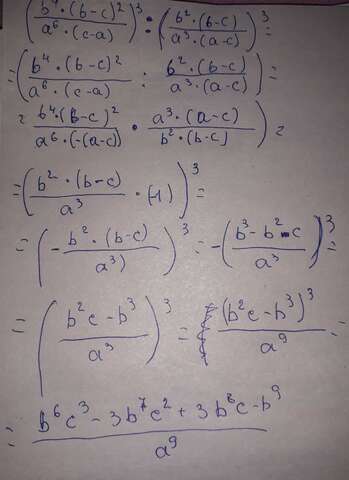 (b⁴·(b-c)²/a⁶·(c-a))³ : (b²·(b-c)/a³·(a-c))³ =
= (b⁴·(b-c)²/a⁶·(c-a) : b²·(b-c)/a³·(a-c)) =
= b⁴·(b-c)²/a⁶·(-(a-c)) · a³·(a-c)/b²·(b-c)) =
= (b²·(b-c)/a³ · (-1))³ =
= (-b²·(b-c)/a³))³ = -(b³-b²-c/a³)³ =
= (b²c-b³/a³)³ = (b²c-b³)³/a⁹ =
= b⁶c³-3b⁷c²+3b⁸c-b⁹/a⁹